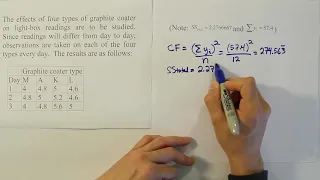 The effects of four types of graphite coater
on light-box readings are to be studied.
Since readings will differ from day to day,
observations are taken on each of the four
types every day. The results are as follows:
Graphite coater type
Day M A K L
1 4 4.8 5 4.6
2 4.8 5 5.2 4.6
3 4 4.8 5.6 5
(Note: and Σ = 57.4
CF = (Σ yᵢ)² / n = (57.4)² / 12 = 274.563
SStotal = 2.27